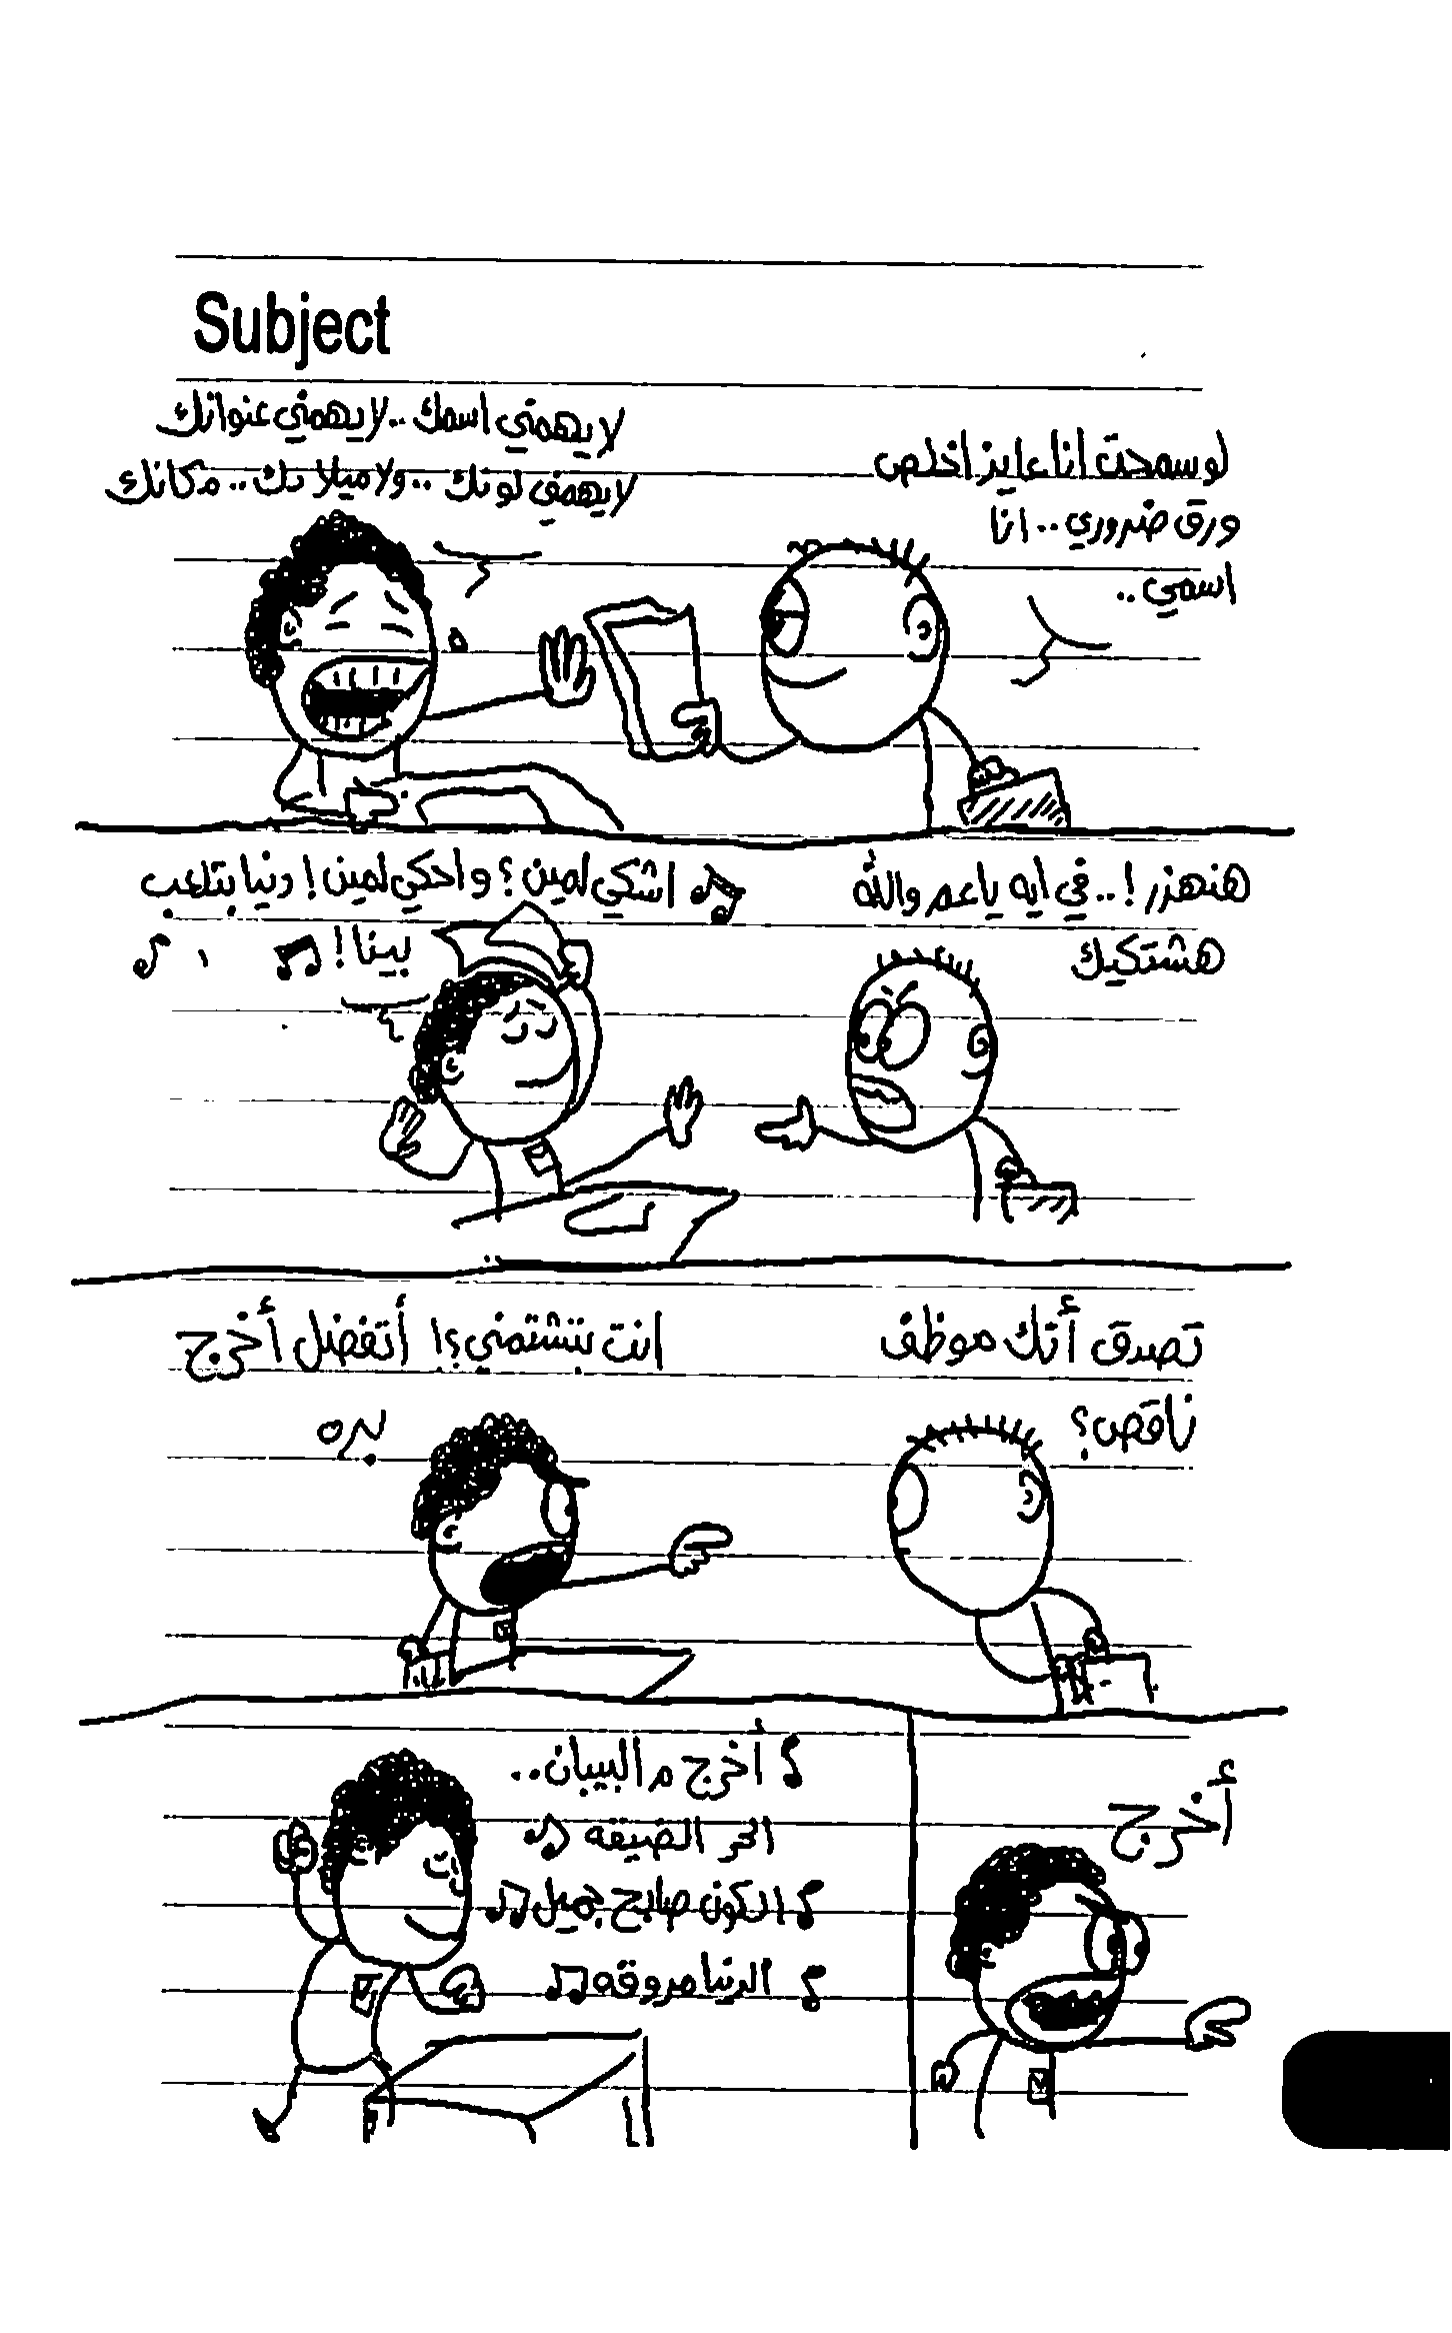 Subject
لو سمحت انا عايز اخلص
ورق ضروري.. انا
اسمي..
لا يهمني اسمك.. لا يهمني عنوانك
لا يهمني لونك.. ولا ميلادك.. مكانك
هنهزر!.. في ايه ياعم والله
هشتكيك
اشكي لمين؟ واحكي لمين! دنيا بتلعب
بينا!
تصدق أنك موظف
ناقص؟
انت بتشتمني؟! أتفضل أخرج
بره
أخرج
أخرج م البيبان..
الحر الضيقه
الكون صابح جميل
الدنيا مروقه